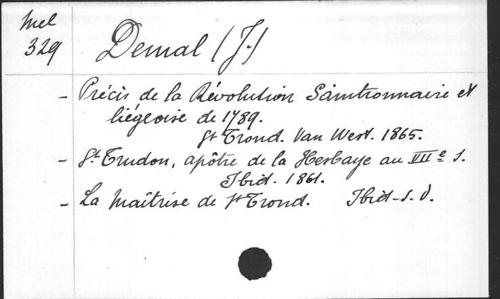 Mel
329
Demal (J.)
- Précis de la Révolution Saintronnaire et
liégeoise de 1789.
St Trond. Van West. 1865.
- St. Trudon, apôtre de la Hesbaye au VIIe s.
Ibid. 1861.
- La Maîtrise de St Trond. Ibid-s.d.